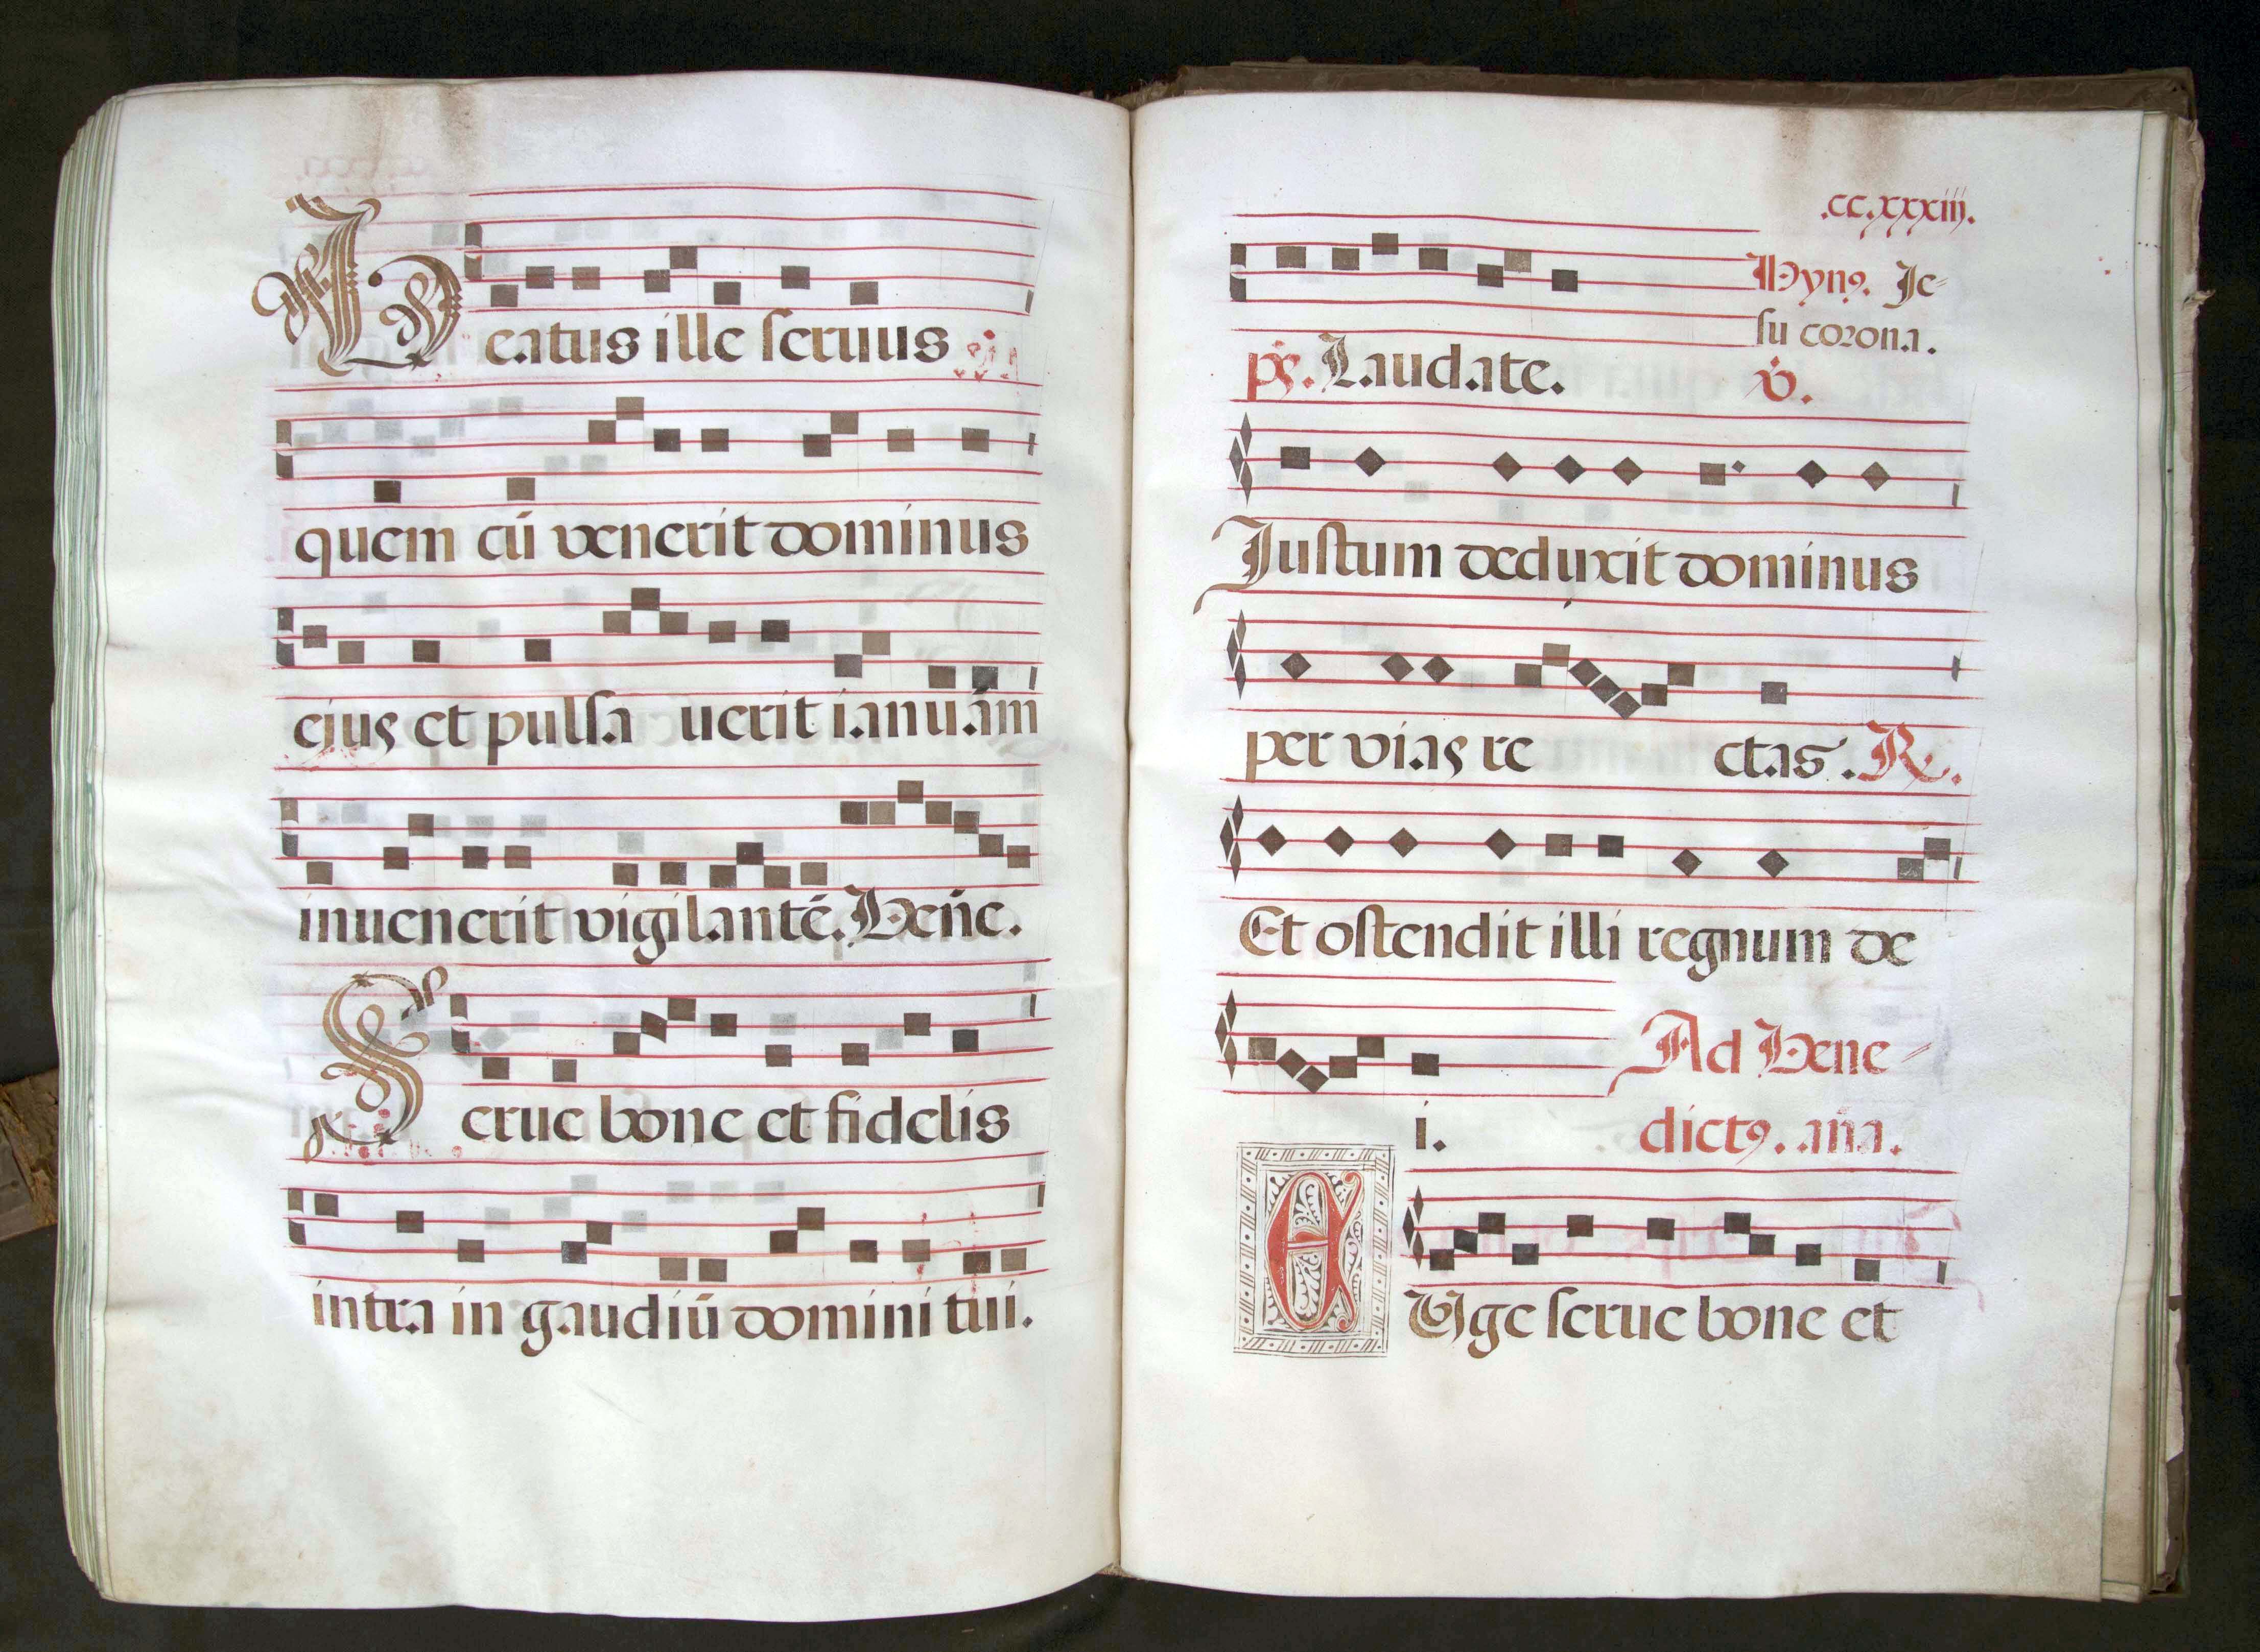 Beatus ille seruus
quem cū venerit dominus
ejus et pulsa uerit ianuam
inuenerit vigilantē. Ben̄e.
Serue bone et fidelis
intra in gaudiū domini tui.
.cc.xxxiij.
Hynꝯ. Je-
su corona.
ps. Laudate. v̇.
Justum deduxit dominus
per vias re ctas. R.
Et ostendit illi regnum de
Ad Bene-
i. dictꝯ. an̄a.
EUge serue bone et